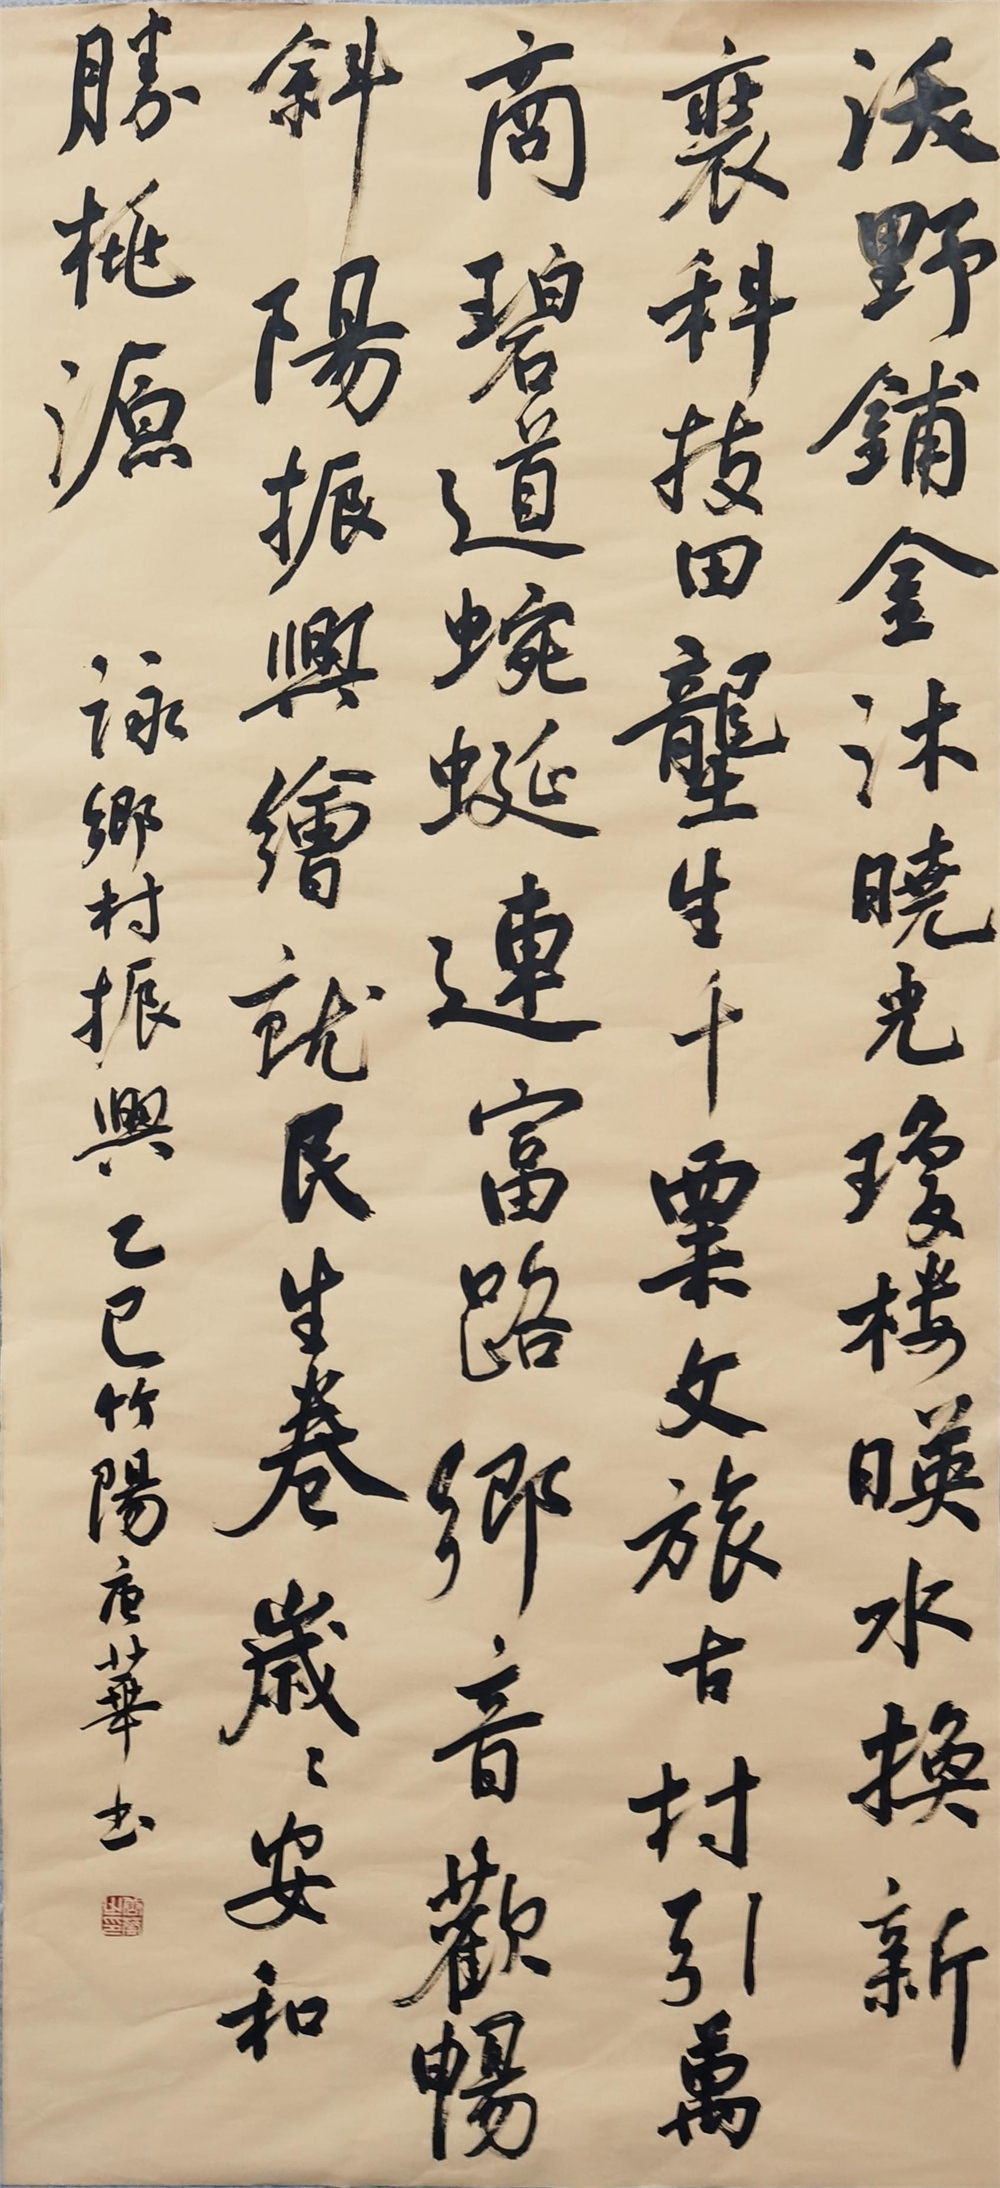 沃野鋪金沐曉光瓊楼暎水換新
裳科技田壟生千粟文旅古村引萬
商碧道蜿蜒連富路鄉音歡暢
斜陽振興繪就民生卷歲〻安和
勝桃源
詠鄉村振興乙巳竹陽唐華书